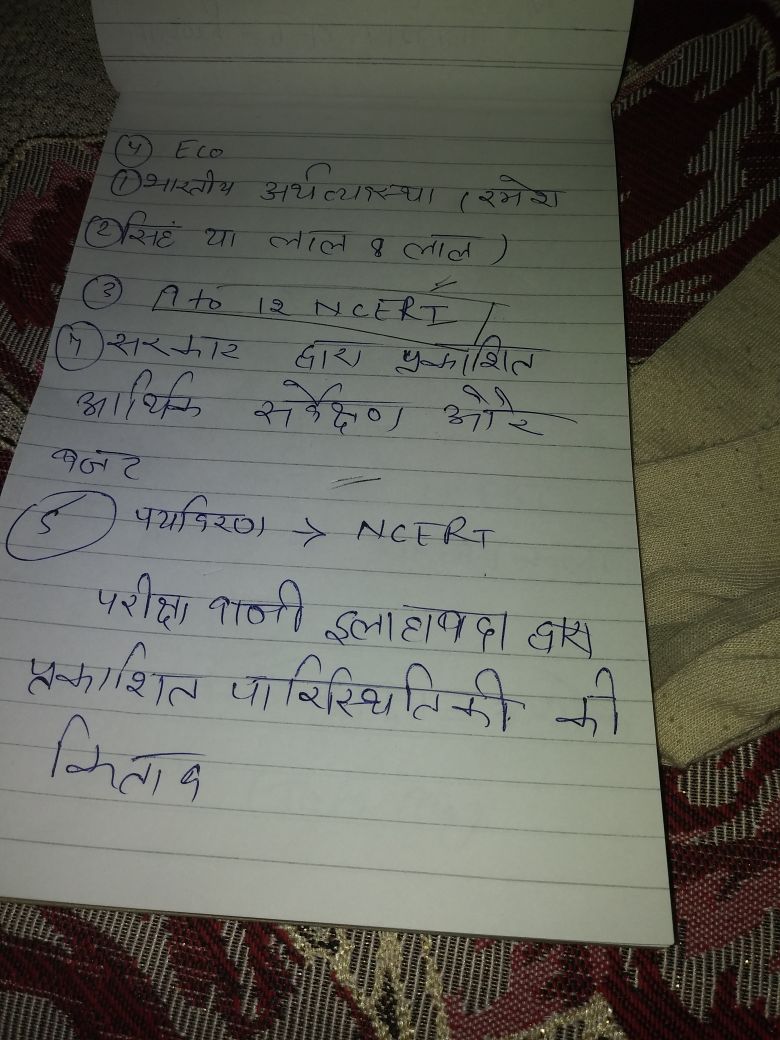 (4) Eco
(1) भारतीय अर्थव्यवस्था (रमेश
(2) सिहं या लाल & लाल)
(3) to 12 NCERT
(4) सरकार द्वारा प्रकाशित
आर्थिक सर्वेक्षण और
बजट
(5) पर्यावरण → NCERT
परीक्षा वाणी इलाहाबाद द्वारा
प्रकाशित पारिस्थितिकी की
किताब